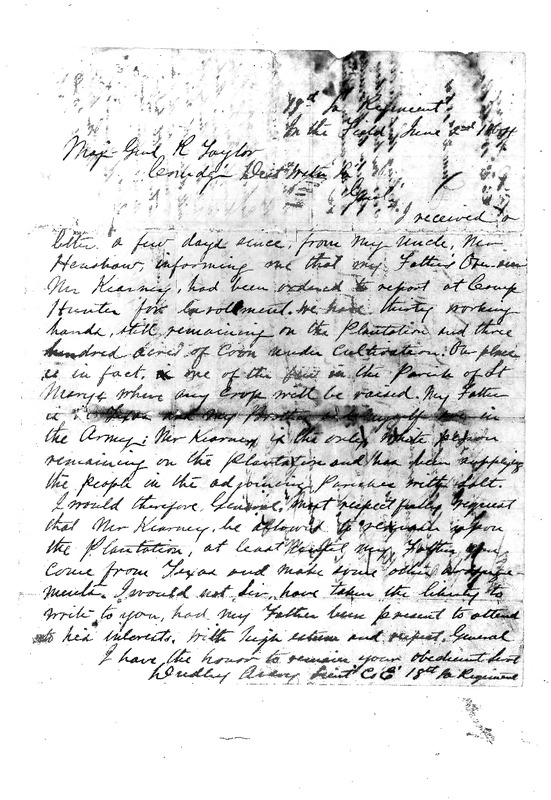 18th La Regiment
In the Field, June 2nd 1864
Maj. Genl R Taylor
Comdg Dist Westn La
Genl
I received a
letter a few days since, from my uncle, Mr
Henshaw, informing me that my Father's Overseer
Mr Kearney, had been ordered to report at Camp
Hunter for Enrollment. We have thirty working
hands, still remaining on the Plantation and three
hundred acres of Corn under Cultivation. Our place
is in fact, one of the few in the Parish of St
Marys where any Crop will be raised. My Father
is in Texas and my Brother and myself are in
the Army; Mr Kearney is the only white person
remaining on the Plantation and has been supplying
the People in the adjoining Parishes with Salt.
I would therefore, General, most respectfully request
that Mr Kearney, be allowed to remain upon
the Plantation, at least until my Father can
come from Texas and make some other arrange-
ments. I would not, Sir, have taken the liberty to
write to you, had my Father been present to attend
to his interests. With high esteem and respect, General
I have the honor to remain your obedient Svt
Dudley Avery Lieut Co E 18th La Regiment